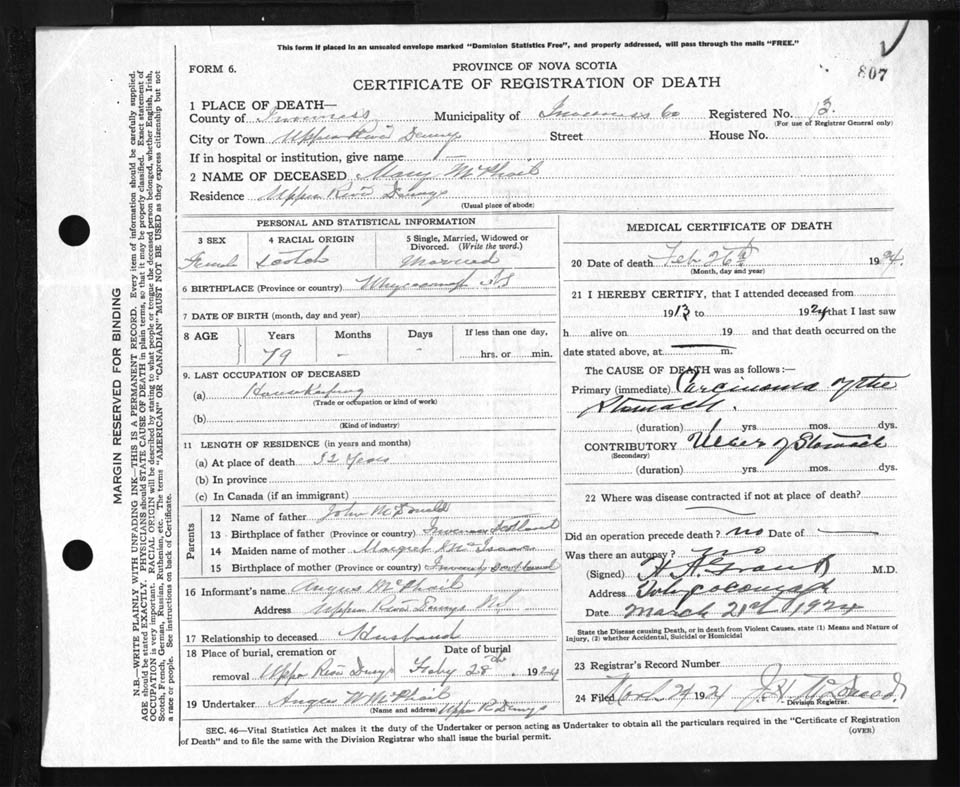 This form if placed in an unsealed envelope marked "Dominion Statistics Free", and properly addressed, will pass through the mails "FREE."
807
FORM 6.
PROVINCE OF NOVA SCOTIA
CERTIFICATE OF REGISTRATION OF DEATH
1 PLACE OF DEATH—
County of Inverness Municipality of Inverness Co Registered No. 13
(For use of Registrar General only)
City or Town Upper River Dennys Street House No.
If in hospital or institution, give name —
2 NAME OF DECEASED Mary McPhail
Residence Upper River Dennys
(Usual place of abode)
PERSONAL AND STATISTICAL INFORMATION
3 SEX 4 RACIAL ORIGIN 5 Single, Married, Widowed or Divorced. (Write the word.)
Female Scotch Married
6 BIRTHPLACE (Province or country) N S
7 DATE OF BIRTH (month, day and year)
8 AGE Years Months Days If less than one day,
79 - - hrs. or min.
9. LAST OCCUPATION OF DECEASED
(a) Housekeeping
(Trade or occupation or kind of work)
(b)
(Kind of industry)
11 LENGTH OF RESIDENCE (in years and months)
(a) At place of death 52 Years
(b) In province
(c) In Canada (if an immigrant)
Parents
12 Name of father John McDonald
13 Birthplace of father (Province or country) Scotland
14 Maiden name of mother Margret McIsaac
15 Birthplace of mother (Province or country) Scotland
16 Informant's name Angus McPhail
Address Upper River Dennys NS
17 Relationship to deceased Husband
18 Place of burial, cremation or Date of burial
removal Upper River Dennys Feby 28th, 1924
19 Undertaker Angus W McPhail
(Name and address) Upper R Dennys
MEDICAL CERTIFICATE OF DEATH
20 Date of death Feb 26th 1924.
(Month, day and year)
21 I HEREBY CERTIFY, that I attended deceased from
1913 to 1924 that I last saw
h alive on 19 and that death occurred on the
date stated above, at m.
The CAUSE OF DEATH was as follows:—
Primary (immediate) Carcinoma of the
Stomach.
(duration) yrs. mos. dys.
CONTRIBUTORY Ulcer of Stomach
(Secondary)
(duration) yrs. mos. dys.
22 Where was disease contracted if not at place of death?
Did an operation precede death? no Date of —
Was there an autopsy? no
(Signed) Grant M.D.
Address
Date March 21st 1924
State the Disease causing Death, or in death from Violent Causes, state (1) Means and Nature of Injury, (2) whether Accidental, Suicidal or Homicidal
23 Registrar's Record Number
24 Filed 24 1924
Division Registrar.
SEC. 46—Vital Statistics Act makes it the duty of the Undertaker or person acting as Undertaker to obtain all the particulars required in the "Certificate of Registration
of Death" and to file the same with the Division Registrar who shall issue the burial permit.
(OVER)
MARGIN RESERVED FOR BINDING
N.B.—WRITE PLAINLY WITH UNFADING INK—THIS IS A PERMANENT RECORD. Every item of information should be carefully supplied.
AGE should be stated EXACTLY. PHYSICIANS should STATE CAUSE OF DEATH in plain terms, so that it may be properly classified. Exact statement of
OCCUPATION is very important. RACIAL ORIGIN will be described by stating to what people or tongue the deceased person belonged, whether English, Irish,
Scotch, French, German, Russian, Ruthenian, etc. The terms "AMERICAN" OR "CANADIAN" MUST NOT BE USED as they express citizenship but not
a race or people. See instructions on back of Certificate.